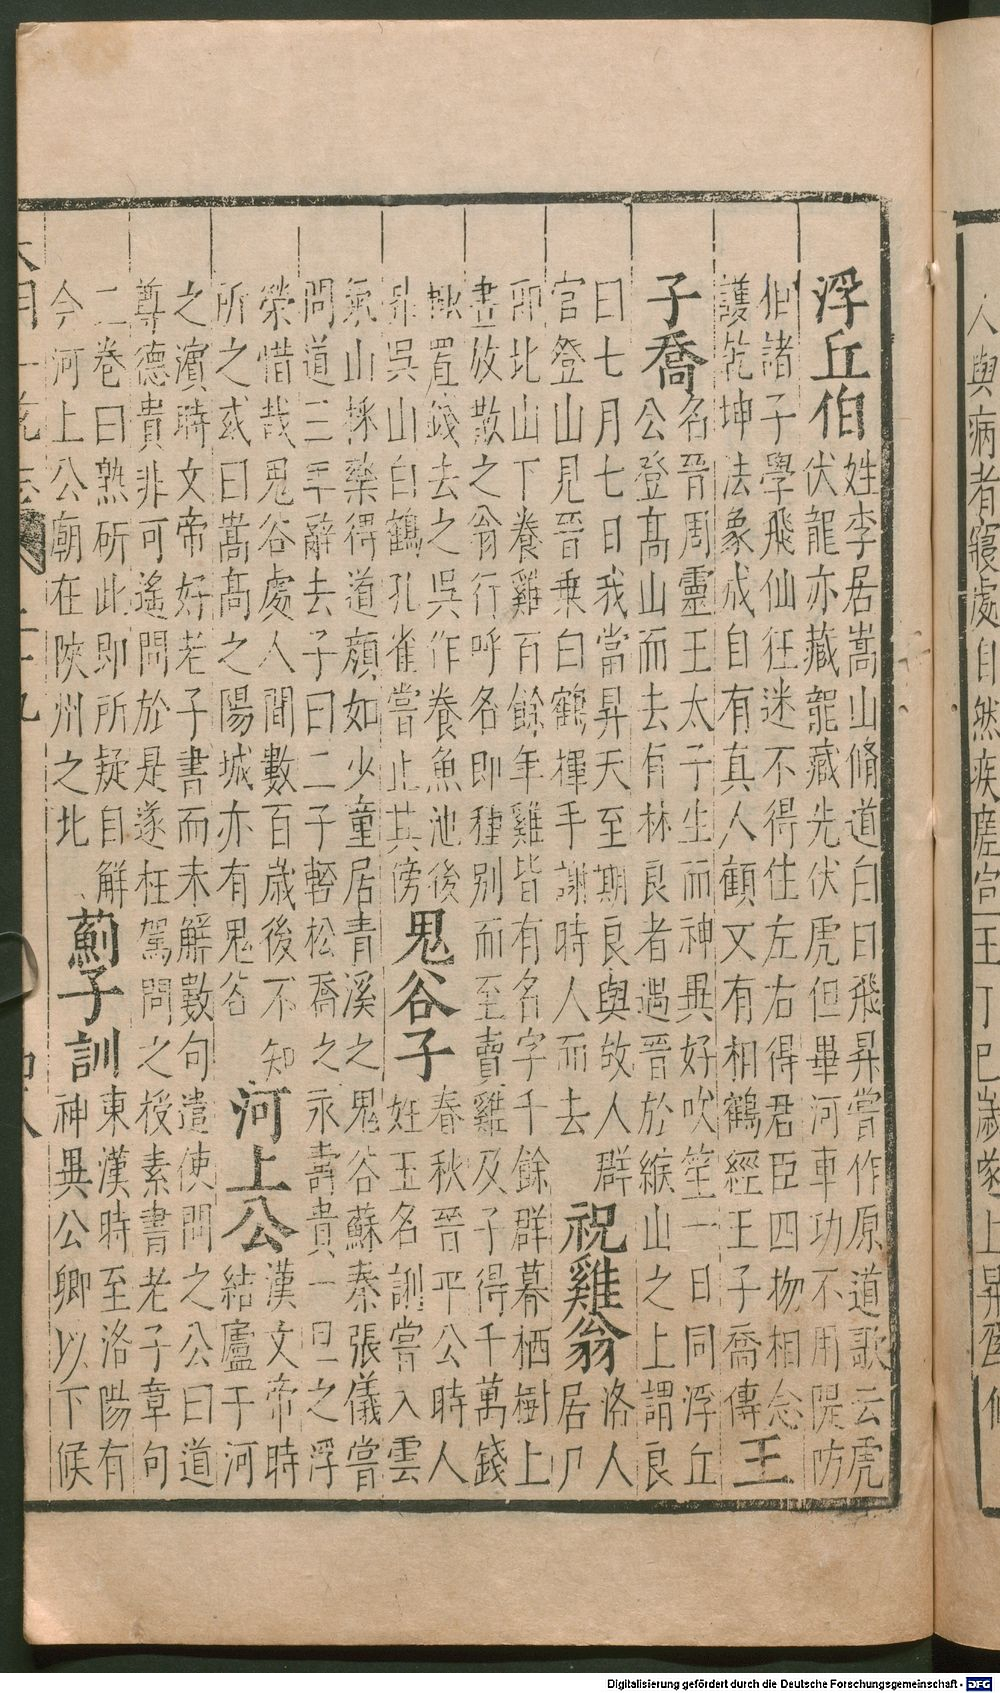 人與病者寢處自然疾瘥
浮丘伯
姓李居嵩山脩道白日飛昇嘗作原道歌云虎
伏龍亦藏龍藏先伏虎但畢河車功不用隄防
伯諸子學飛仙狂迷不得住左右得君臣四物相念
護乾坤法象成自有真人顧又有相鶴經王子喬傳
王
子喬
名晉周靈王太子生而神異好吹笙一日同浮丘
公登高山而去有林良者遇晉於緱山之上謂良
曰七月七日我當昇天至期良與故人群
官登山見晉乗白鶴揮手謝時人而去
祝雞翁
洛人
居尸
北山下養雞百餘年雞皆有名字千餘群暮栖樹上
晝放散之翁行呼名即種別而至賣雞及子得千萬錢
輙置錢去之吳作養魚池後
昇吳山白鶴孔雀嘗止其傍
鬼谷子
春秋晉平公時人
姓王名訓嘗入雲
氣山採藥得道顏如少童居青溪之鬼谷蘇秦張儀嘗
問道三年辭去子曰二子輕松喬之永壽貴一旦之浮
榮惜哉鬼谷處人間數百歲後不知
所之或曰嵩高之陽城亦有鬼谷
河上公
漢文帝時
結廬于河
之濱時文帝好老子書而未解數句遣使問之公曰道
尊德貴非可遙問於是遂枉駕問之授素書老子章句
二卷曰熟研此即所疑自解
今河上公廟在陝州之北
薊子訓
東漢時至洛陽有
神異公卿以下候
Digitalisierung gefördert durch die Deutsche Forschungsgemeinschaft - DFG